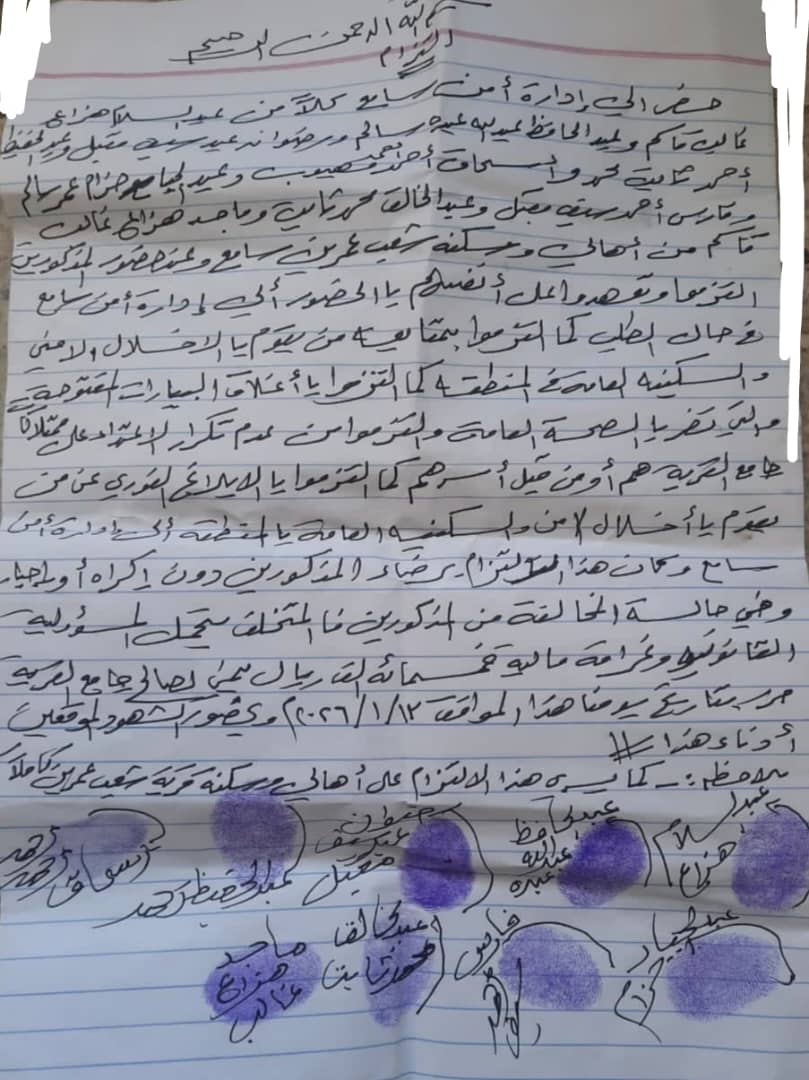 بسم الله الرحمن الرحيم
التزام
حضر إلي إدارة أمن سامع كلاً من عبد السلام هزاع
غالب قاسم وعبد الحافظ عبد الله عبده سالم ورضوان عبد سيف مقبل وعبد الحفيظ
أحمد ثابت محمد واسحاق أحمد وعبد الجبار حزام عمر سالم
وفارس أحمد سيف مقبل وعبد الخالق محمد ثابت وماجد هزاع غالب
قاسم من أهالي وسكنه شعب عمرين سامع وعند حضور المذكورين
التزموا وتعهدوا على أنفسهم يا الحضور ألي إدارة أمن سامع
في حال الطلب كما التزموا بمتابعة من يقوم يا الاخلال ولامني
والسكينه العامة في المنطقه كما التزموا يا أغلاق البيارات المفتوحة
والتي تضر يا الصحة العامة والتزموا من عدم تكرار الاعتداء على ممتلكات
جامع القرية هم أو من قبل أسرهم كما التزموا يا الابلاغ الفوري عن من
يقوم يا أخلال لامن والسكينه العامة يا المنطقة ألى إدارة أمن
سامع وكان هذا التزام برضاء المذكورين دون إكراه أو إجبار
وفي حالة المخالفة من المذكورين فا المتخلف يتحمل المسؤولية
القانونية وغرامة مالية خمسمائة ألف ريال يمني لصالح جامع القرية
حرر بتاريخ يومنا هذا الموافق ٢٠٢٦/١/١٣م وبحضور الشهود الموقعين
أدناء هذا //
ملاحظه :ـ كما يسري هذا الالتزام على أهالي وسكنه قرية شعب عمرين كاملاً
عبد السلام هزاع
عبد الحافظ عبد الله عبده
رضوان عبد سيف مقبل
عبد الحفيظ أحمد
اسحاق أحمد
عبد الجبار حزام
فارس أحمد
عبد الخالق محمد ثابت
ماجد هزاع غالب